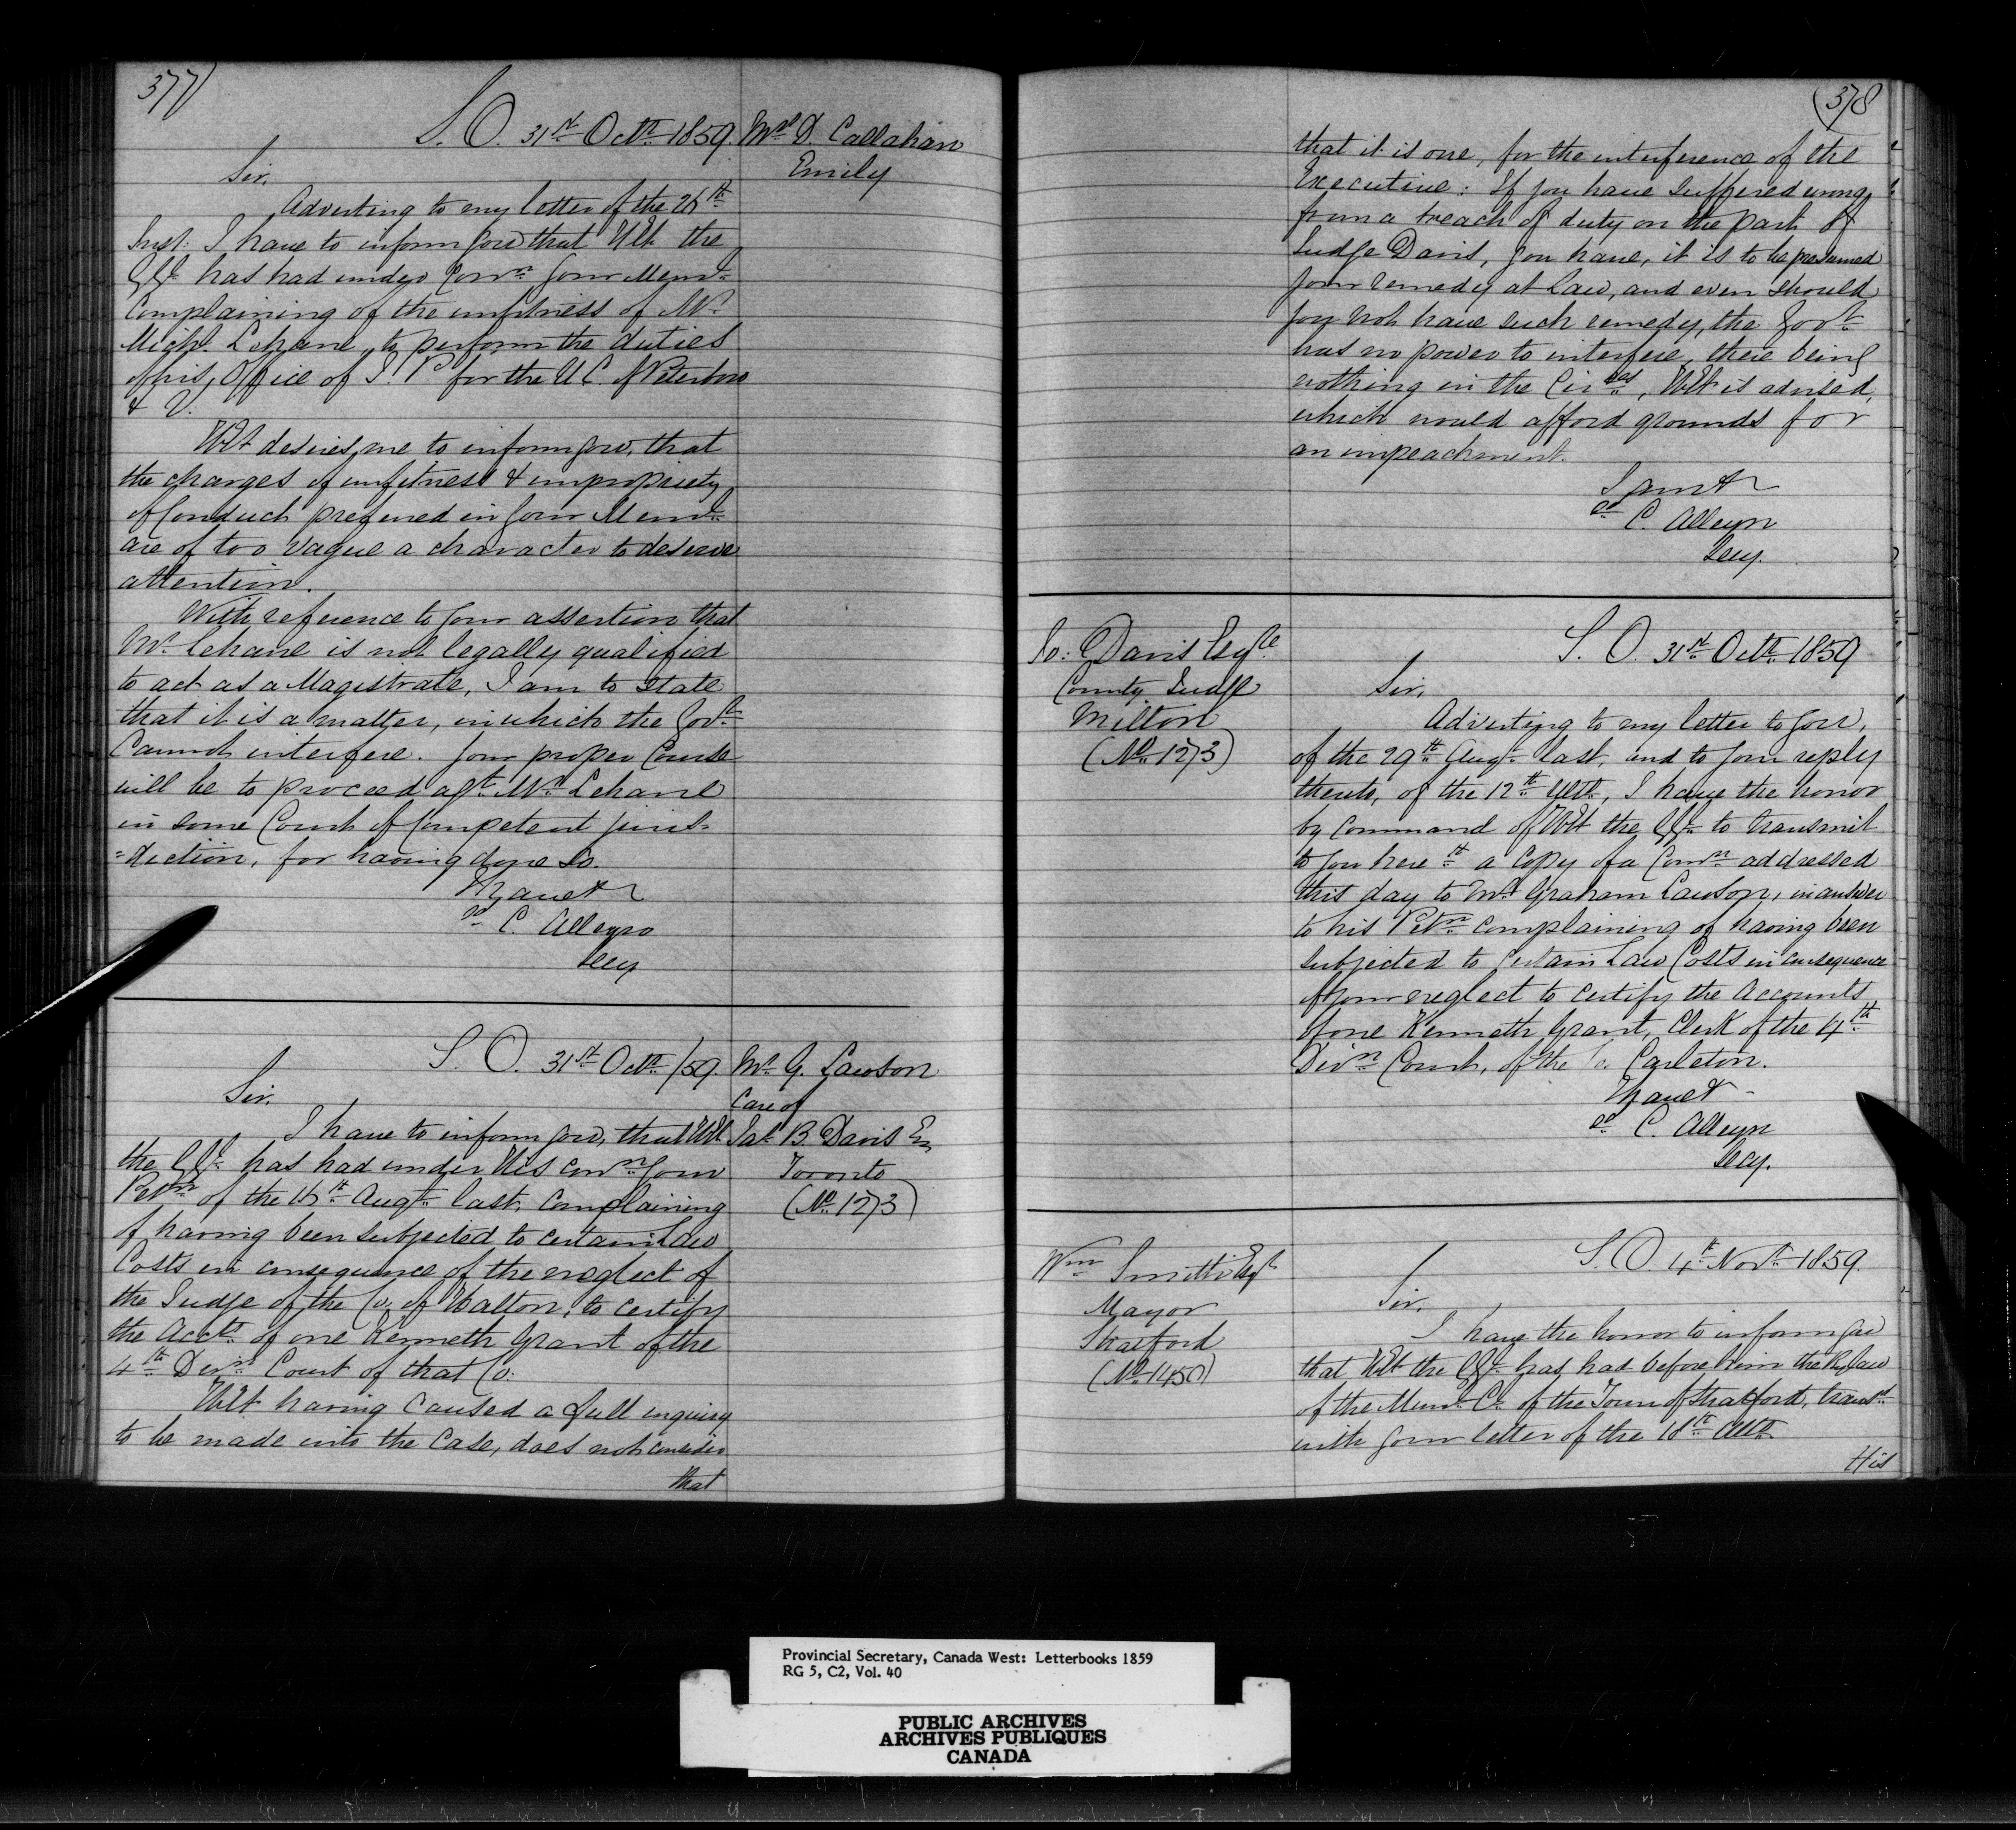 377)
S. O. 31st Octr 1859.
Mr D. Callahan
Emily
Sir,
Adverting to my letter of the 26th
Inst. I have to inform you that HE the
GG. has had under Conn. your Meml.
Complaining of the unfitness of Mr
Michl. Lehane, to perform the duties
of his Office of J. P. for the U C. of Peterboro
& V.
HE desires me to inform you, that
the charges of unfitness & impropriety
of Conduct preferred in your Meml.
are of too vague a character to deserve
attention.
With reference to your assertion that
Mr Lehane is not legally qualified
to act as a Magistrate, I am to state
that it is a matter, in which the Govt.
Cannot interfere. Your proper Course
will be to proceed agt. Mr Lehane
in some Court of Competent juris-
=diction, for having done so.
I have &
C. Alleyn
Secy
S. O. 31st Octr /59.
Mr G. Lawson
Care of
Jas B. Davis Es
Toronto
(No. 1273)
Sir.
I have to inform you, that HE
the GG. has had under His conn your
Petn of the 16th Augt. last, complaining
of having been subjected to certain Law
Costs in consequence of the neglect of
the Judge of the Co. of Halton, to certify
the Accts. of one Kenneth Grant of the
4th Divn. Court of that Co.
HE having caused a full inquiry
to be made into the Case, does not consider
that
(378
that it is one, for the interference of the
Executive: If you have suffered wrong,
from a breach of duty on the part of
Judge Davis, you have, it is to be presumed
your remedy at Law, and even should
you not have such remedy, the Govt.
has no power to interfere, there being
nothing in the Circes, HE is advised,
which would afford grounds for
an impeachment.
I am &
C. Alleyn
Secy.
Jo: Davis Esqre
County Judge
Milton
(No. 1273)
S. O. 31st Octr. 1859
Sir,
Adverting to my letter to you,
of the 29th Augt. last, and to your reply
thereto, of the 12th Ulto., I have the honor
by Command of HE the GG. to transmit
to you herewt. a Copy of a Comn. addressed
this day to Mr Graham Lawson, in answer
to his Petn. complaining of having been
subjected to certain Law Costs in consequence
of your neglect to certify the Accounts
of one Kenneth Grant, Clerk of the 4th
Divn. Court, of the Co. Carleton.
I have &
C. Alleyn
Secy.
Wm Smith Esqr
Mayor
Stratford
(No. 1450)
S. O. 4th Novr. 1859.
Sir,
I have the honor to inform you
that HE the GG. has had before him the By law
of the Munl. Cl. of the Town of Stratford, transd.
with your letter of the 18th Ulto.
His
Provincial Secretary, Canada West: Letterbooks 1859
RG 5, C2, Vol. 40
PUBLIC ARCHIVES
ARCHIVES PUBLIQUES
CANADA